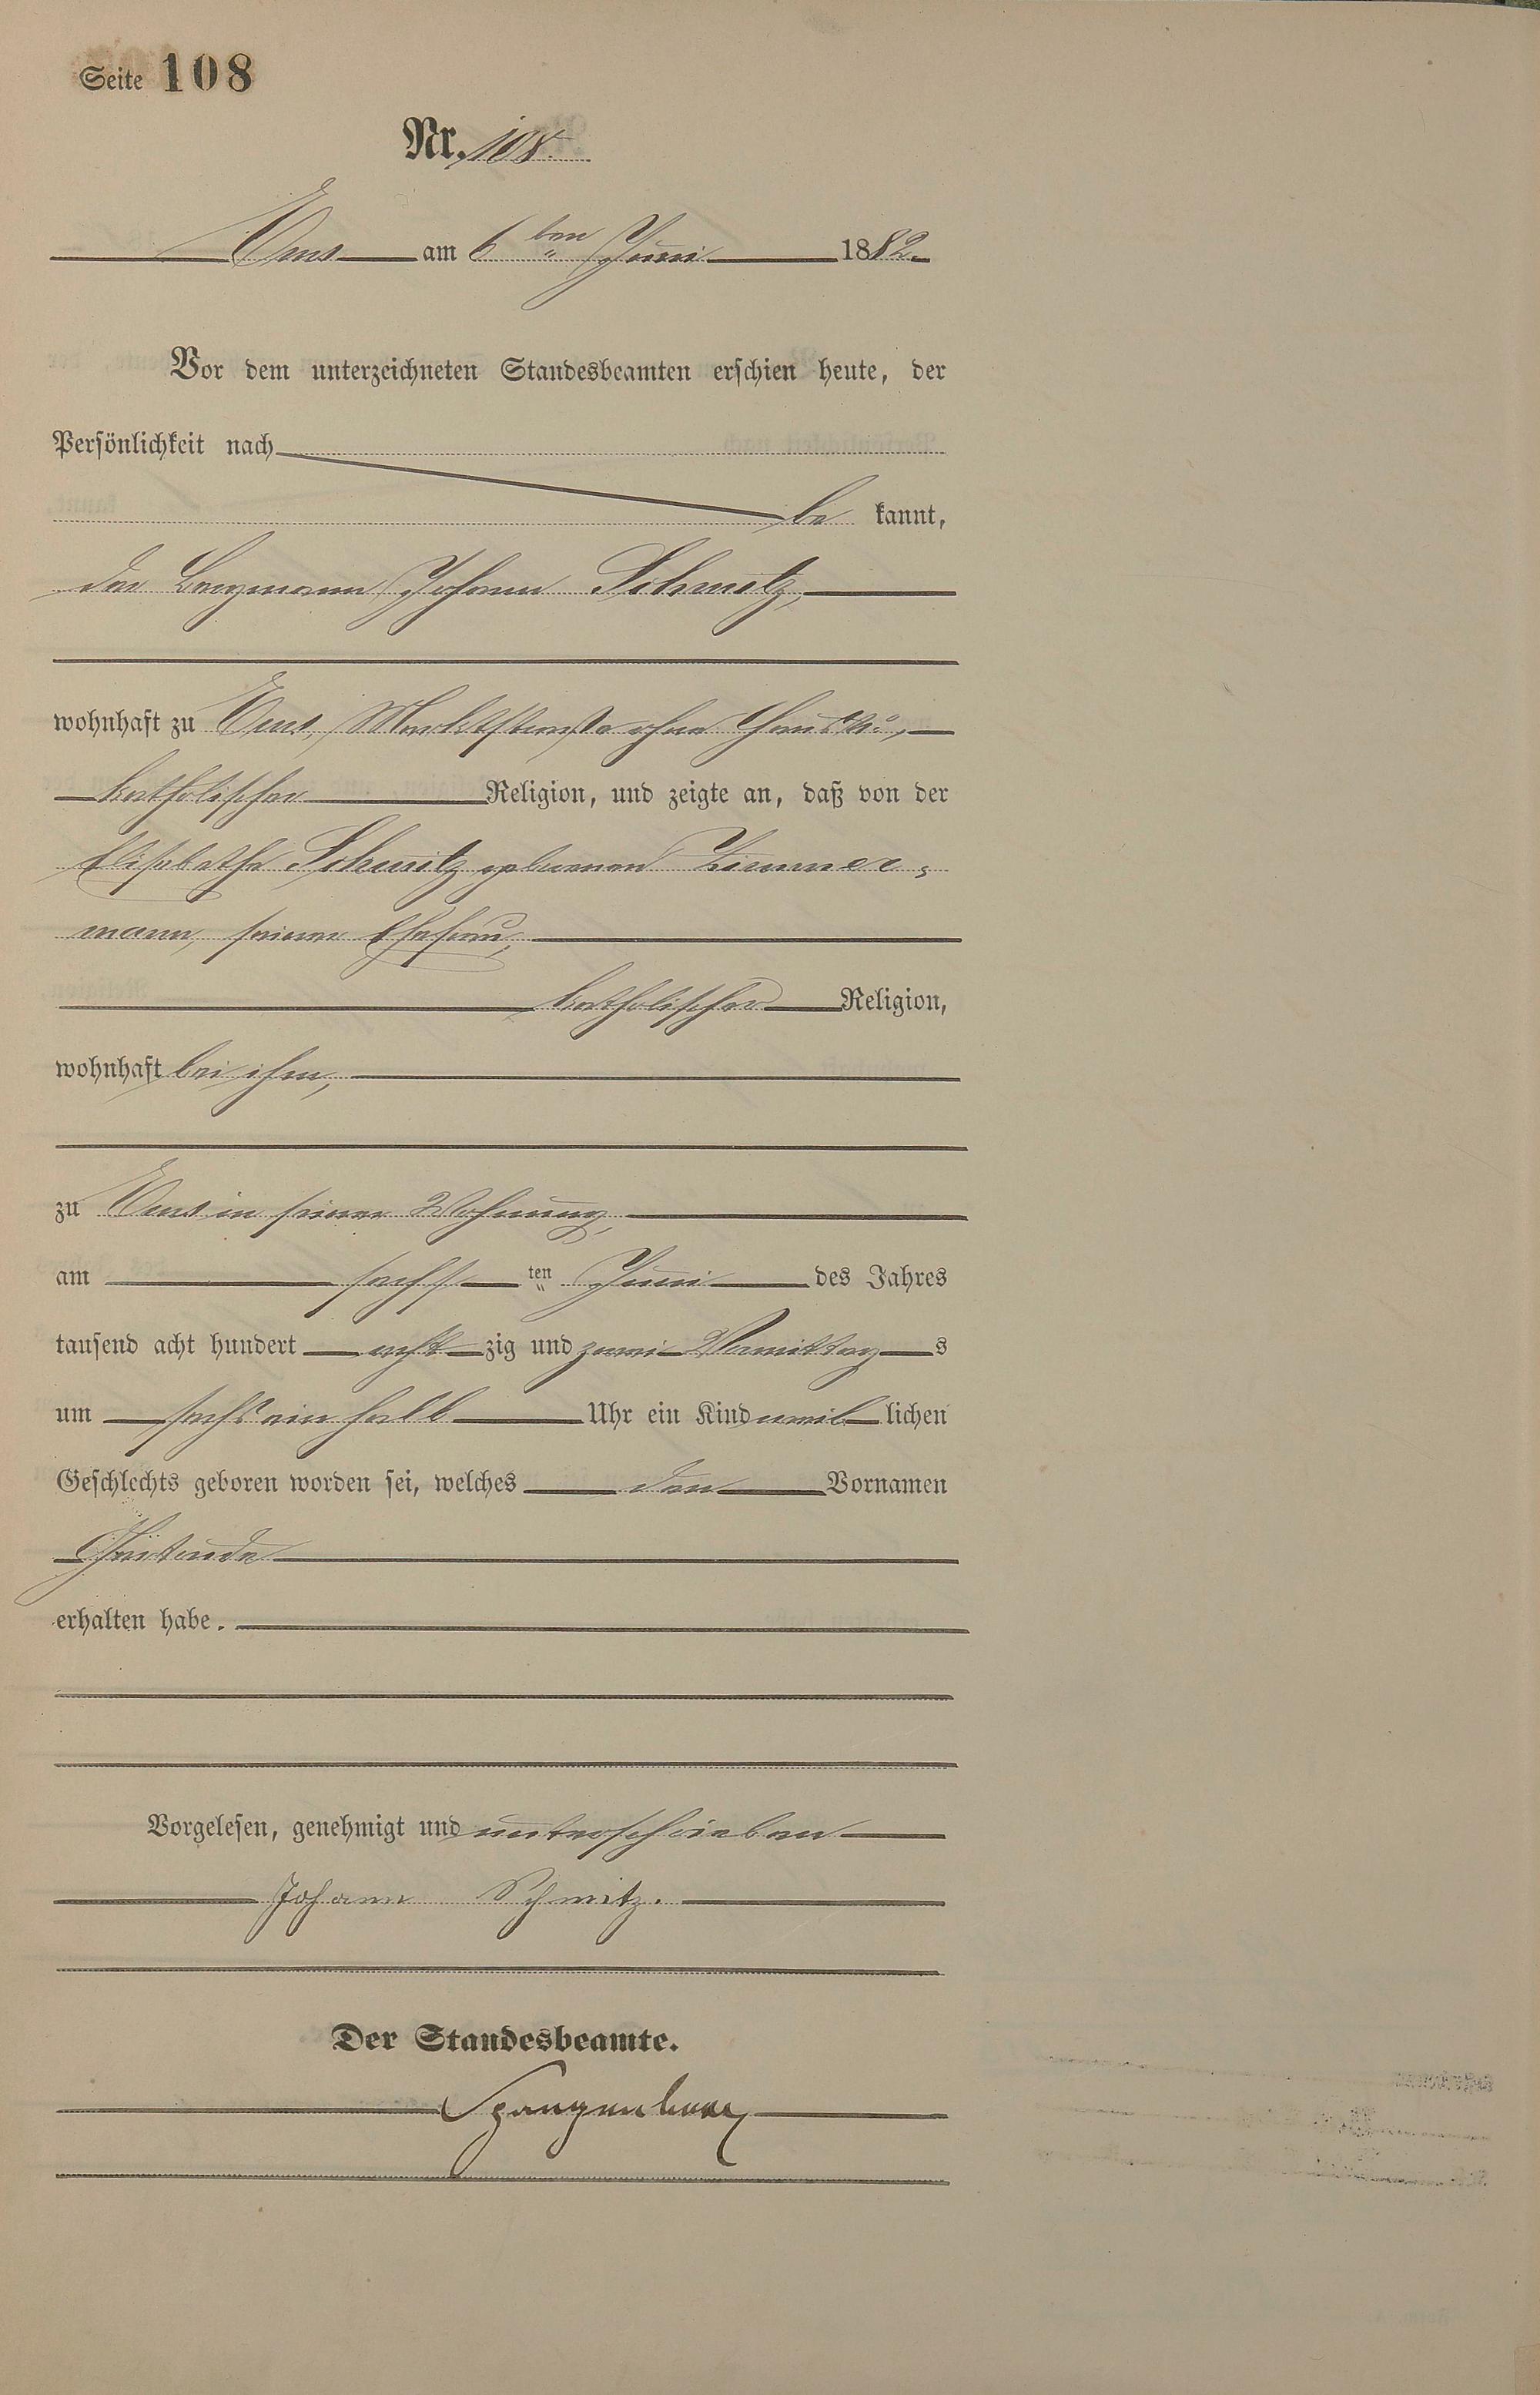 Seite 108
Nr. 108.
Ems am 6ten Juni 1882.
Vor dem unterzeichneten Standesbeamten erschien heute, der
Persönlichkeit nach
be kannt,
der Bergmann Johann Schmitz,
wohnhaft zu Ems, Marktstraße ohne Haus No.,
katholischer Religion, und zeigte an, daß von der
Elisabetha Schmitz geborenen Zimmer-
mann, seiner Ehefrau,
katholischer Religion,
wohnhaft bei ihm,
zu Ems in seiner Wohnung,
am sechsten Juni des Jahres
tausend acht hundert achtzig und zwei Vormittags
um sechs ein halb Uhr ein Kind weiblichen
Geschlechts geboren worden sei, welches den Vornamen
erhalten habe.
Vorgelesen, genehmigt und unterschrieben
Johann Schmitz.
Der Standesbeamte.
Spangenberg